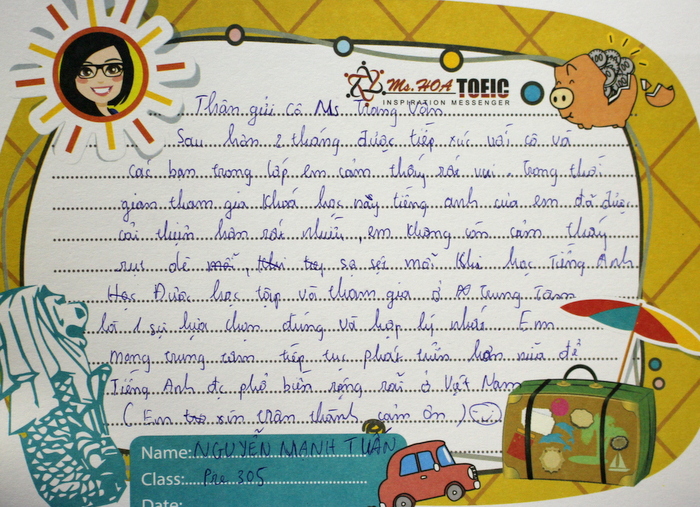 Ms.HOA TOEIC
INSPIRATION MESSENGER
Thân gửi cô Ms Trang Vân
Sau hơn 2 tháng được tiếp xúc với cô và
các bạn trong lớp em cảm thấy rất vui. Trong thời
gian tham gia khoá học này tiếng anh của em đã được
cải thiện hơn rất nhiều, em không còn cảm thấy
rụt dè sợ sệt mỗi khi học Tiếng Anh
Được học tập và tham gia ở Trung Tâm
là 1 sự lựa chọn đúng và hợp lý nhất. Em
mong trung tâm tiếp tục phát triển hơn nữa để
Tiếng Anh đc phổ biến rộng rãi ở Việt Nam
(Em xin trân thành cảm ơn)
Name: NGUYỄN MẠNH TUẤN
Class: Pre 305
Date: